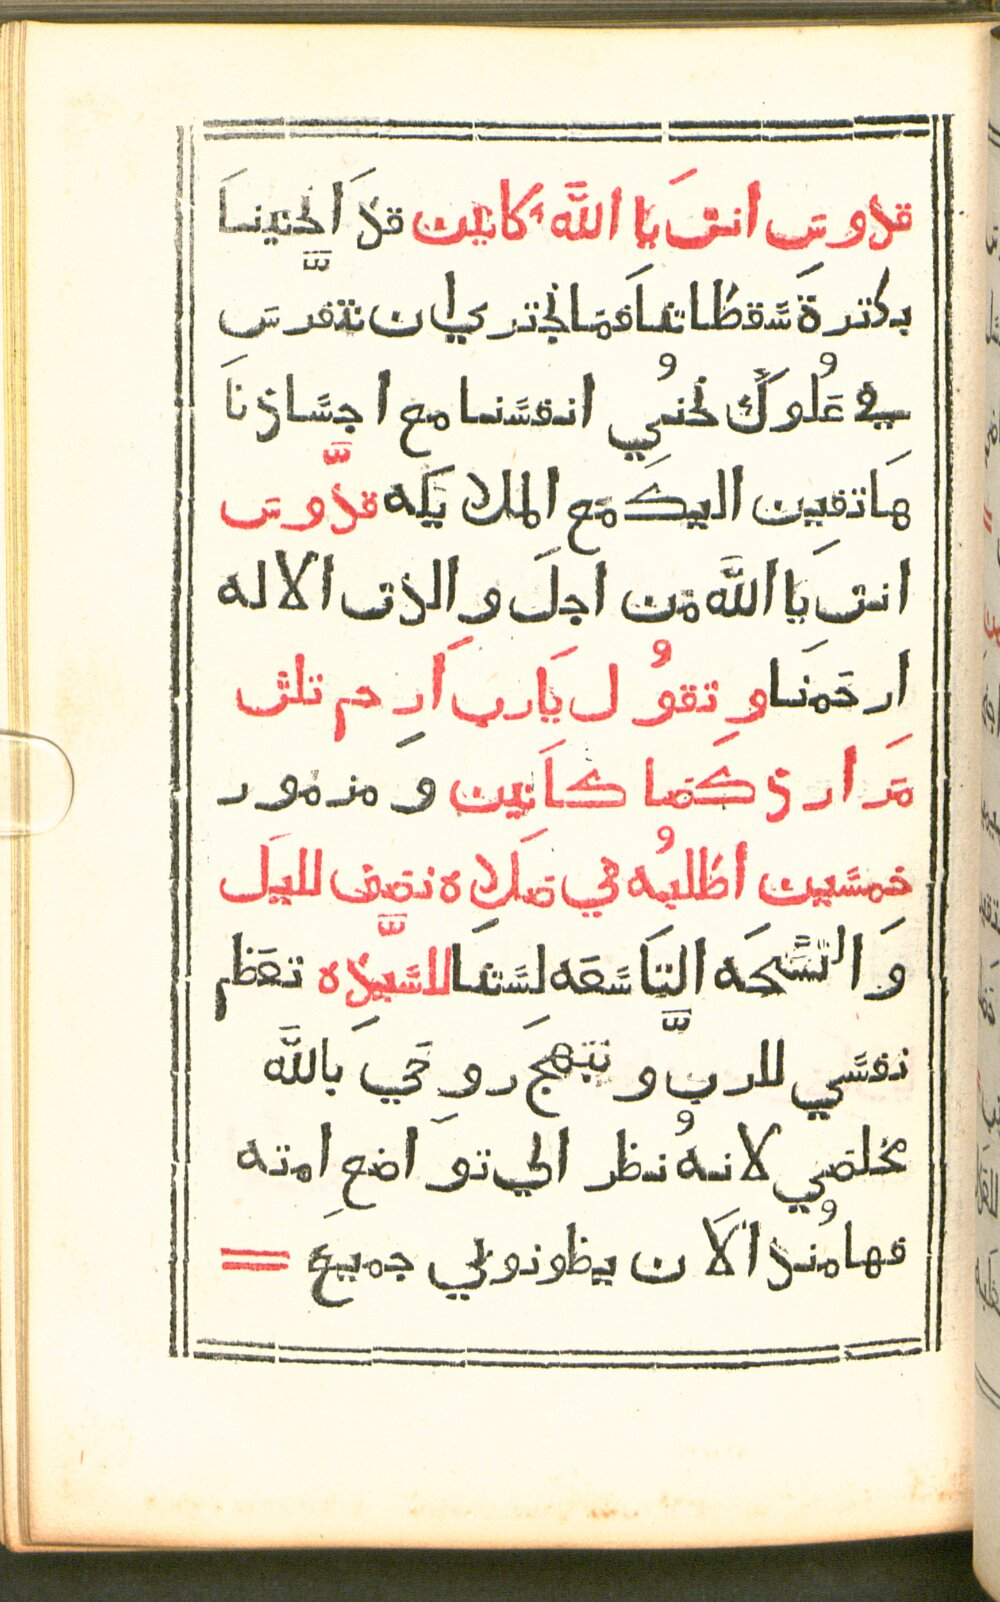 قدوس انت يا الله كاتين قد انحنينا
بكترة سقطاتنا فما نجتري ان نتفرس
في علوك نحني انفسنا مع اجسادنا
هاتفين اليك مع الملايكه قدوس
انت يا الله من اجل والدت الاله
ارحمنا وتقول يارب ارحم تلت
مرار دكصا كانين ومزمور
خمسين اطلبه في صلاه نصف لليل
والتسحه التاسعه لستنا للسيده تعظم
نفسي للرب وتبتهج روحي بالله
مخلصي لانه نظر الي تواضع امته
فها منذ الان يظونوني جميع